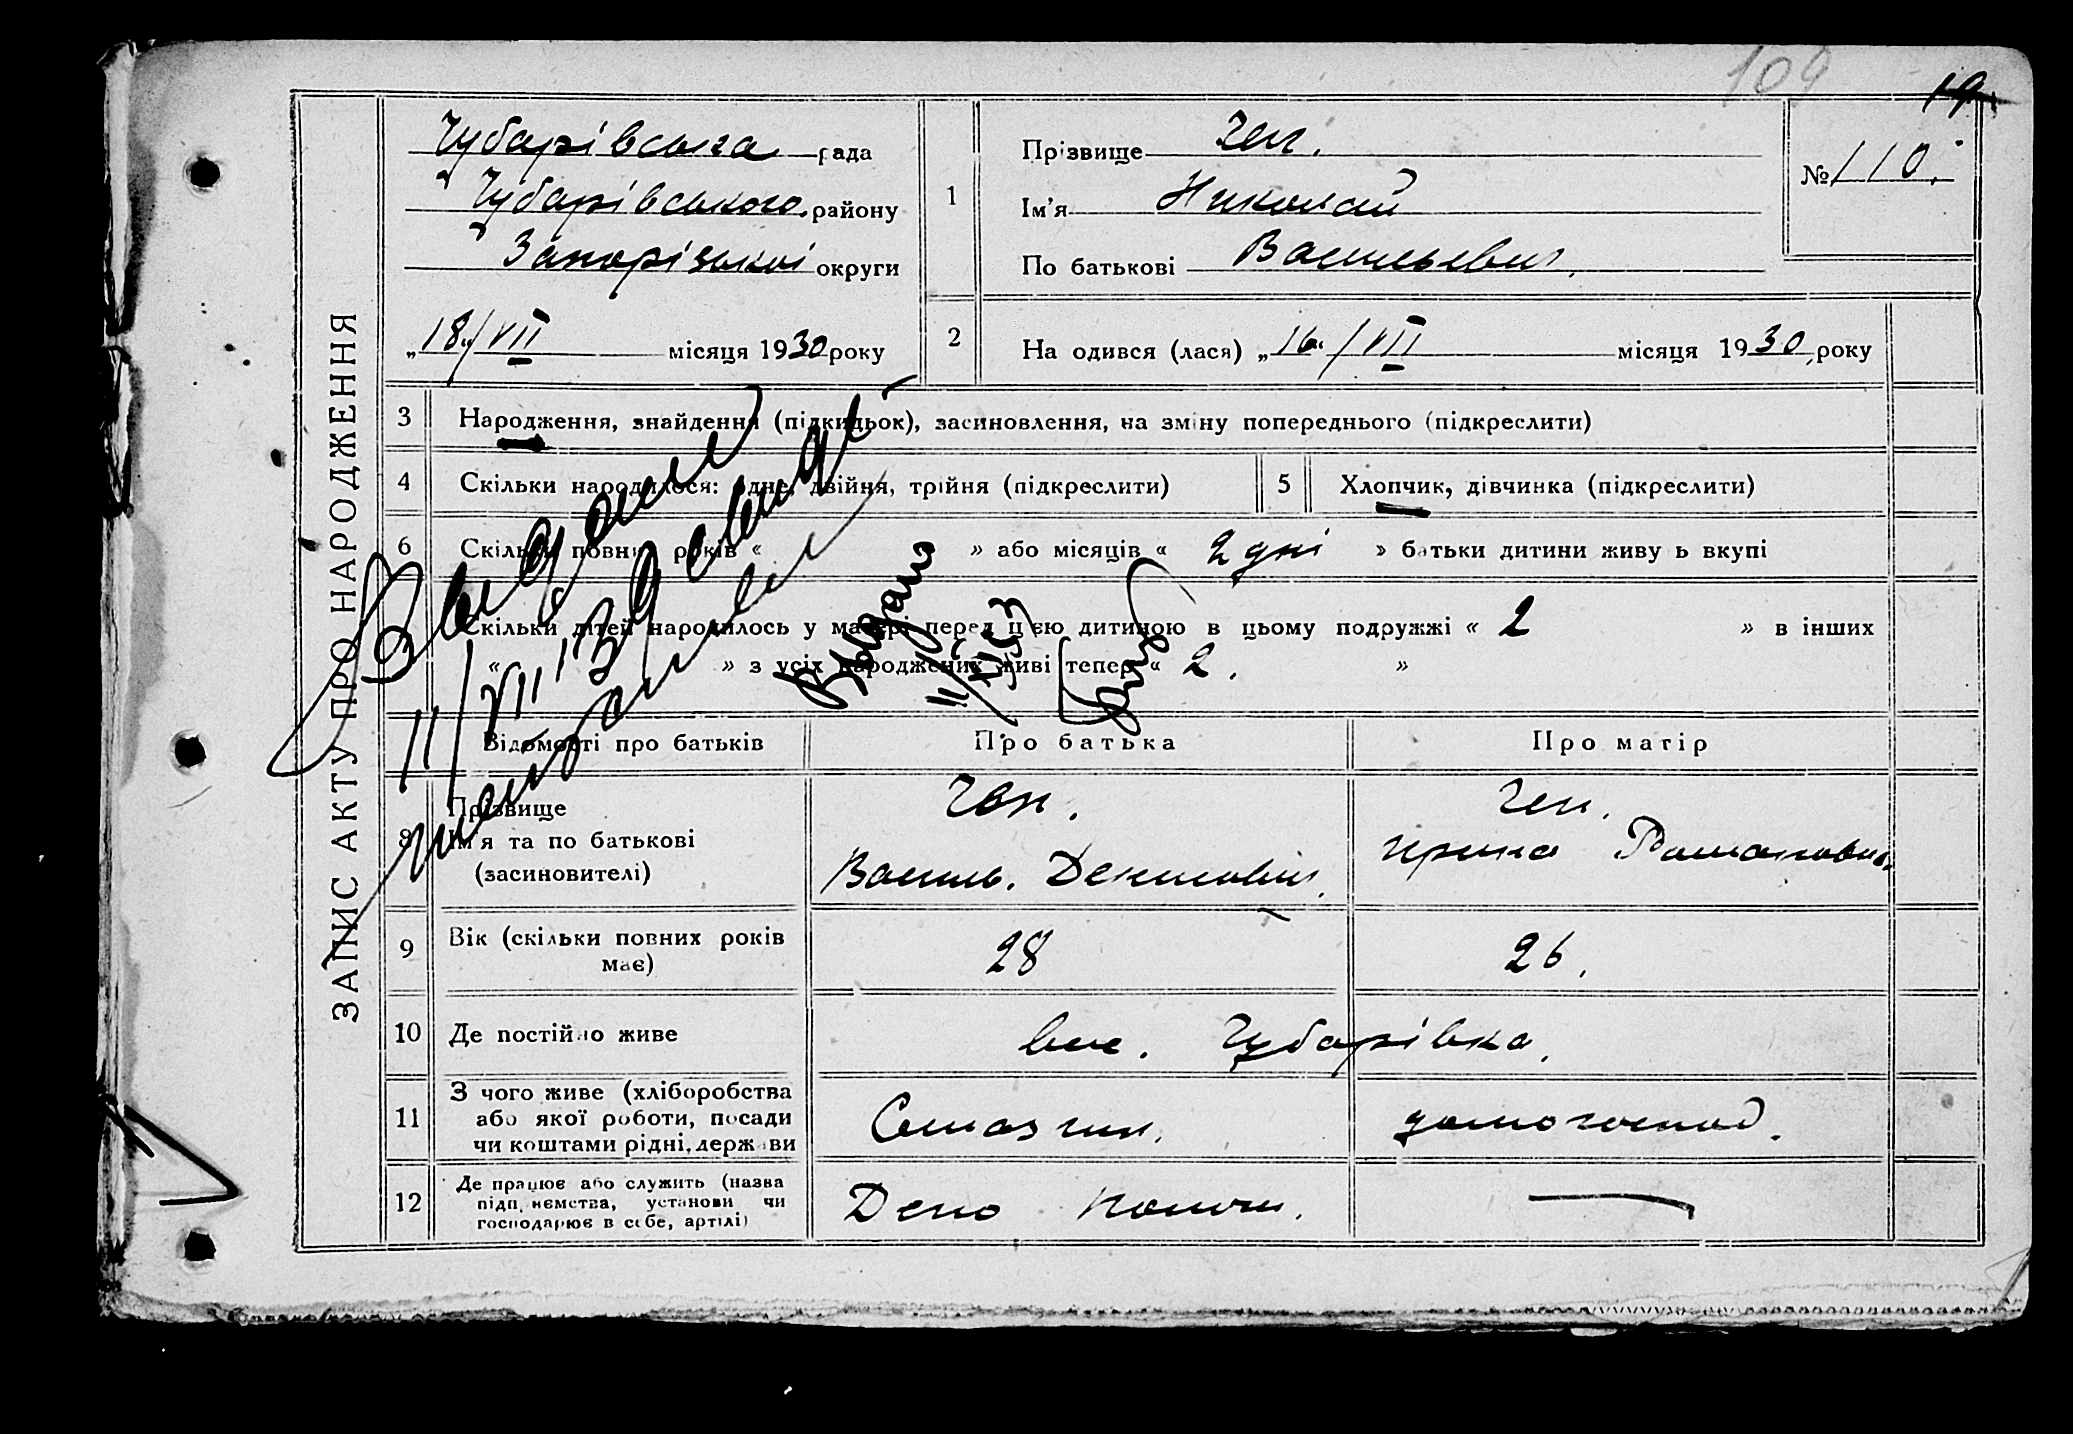 109
19
ЗАПИС АКТУ ПРО НАРОДЖЕННЯ
Чубарівська рада
Чубарівського району
Запорізької округи
„18“/VII місяця 1930 року
1
Прізвище Чеп.
Ім'я Николай
По батькові Васильевич.
№ 110.
2
На одився (лася) „16“/VII місяця 1930 року
3 Народження, знайдення (підкидьок), засиновлення, на зміну попереднього (підкреслити)
4 Скільки народилося: одне, двійня, трійня (підкреслити)
5 Хлопчик, дівчинка (підкреслити)
6 Скільки повних років « » або місяців « 2 дні » батьки дитини живу ь вкупі
Скільки дітей народилось у матері перед цією дитиною в цьому подружжі « 2 » в інших
« » з усіх народжених живі тепер « 2. »
11/VII 39
Выдано
11/XI 53
Відомості про батьків
Про батька
Про матір
8 Прізвище
Ім'я та по батькові
(засиновителі)
Чеп.
Василь. Денисович.
Чеп.
Ирина Романовна
9 Вік (скільки повних років має)
28
26.
10 Де постійно живе
Чубарівка.
11 З чого живе (хліборобства
або якої роботи, посади
чи коштами рідні, держави
домогоспод.
12 Де працює або служить (назва
підприємства, установи чи
господарює в себе, артілі)
Депо Пологи.